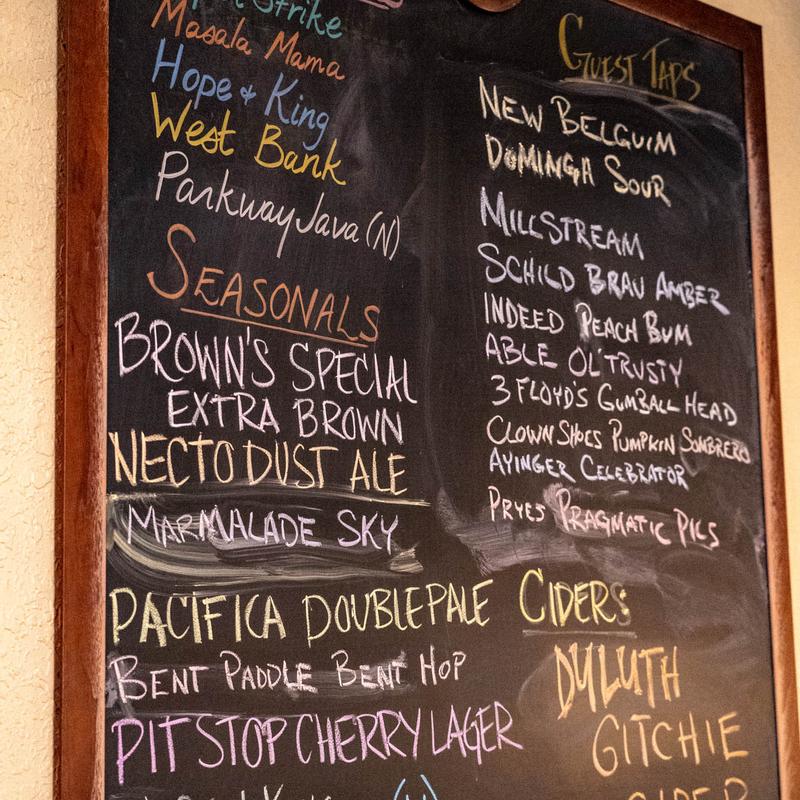 Strike
Masala Mama
Hope & King
West Bank
Parkway Java (N)
SEASONALS
BROWN'S SPECIAL
EXTRA BROWN
NECTO DUST ALE
MARMALADE SKY
PACIFICA DOUBLE PALE
BENT PADDLE BENT HOP
PIT STOP CHERRY LAGER
GUEST TAPS
NEW BELGUIM
DOMINGA SOUR
MILLSTREAM
SCHILD BRAU AMBER
INDEED PEACH BUM
ABLE OL' TRUSTY
3 FLOYD'S GUMBALL HEAD
CLOWN SHOES PUMPKIN SOMBRERO
AYINGER CELEBRATOR
PRYES PRAGMATIC PILS
CIDERS
DULUTH
GITCHIE
CIDER